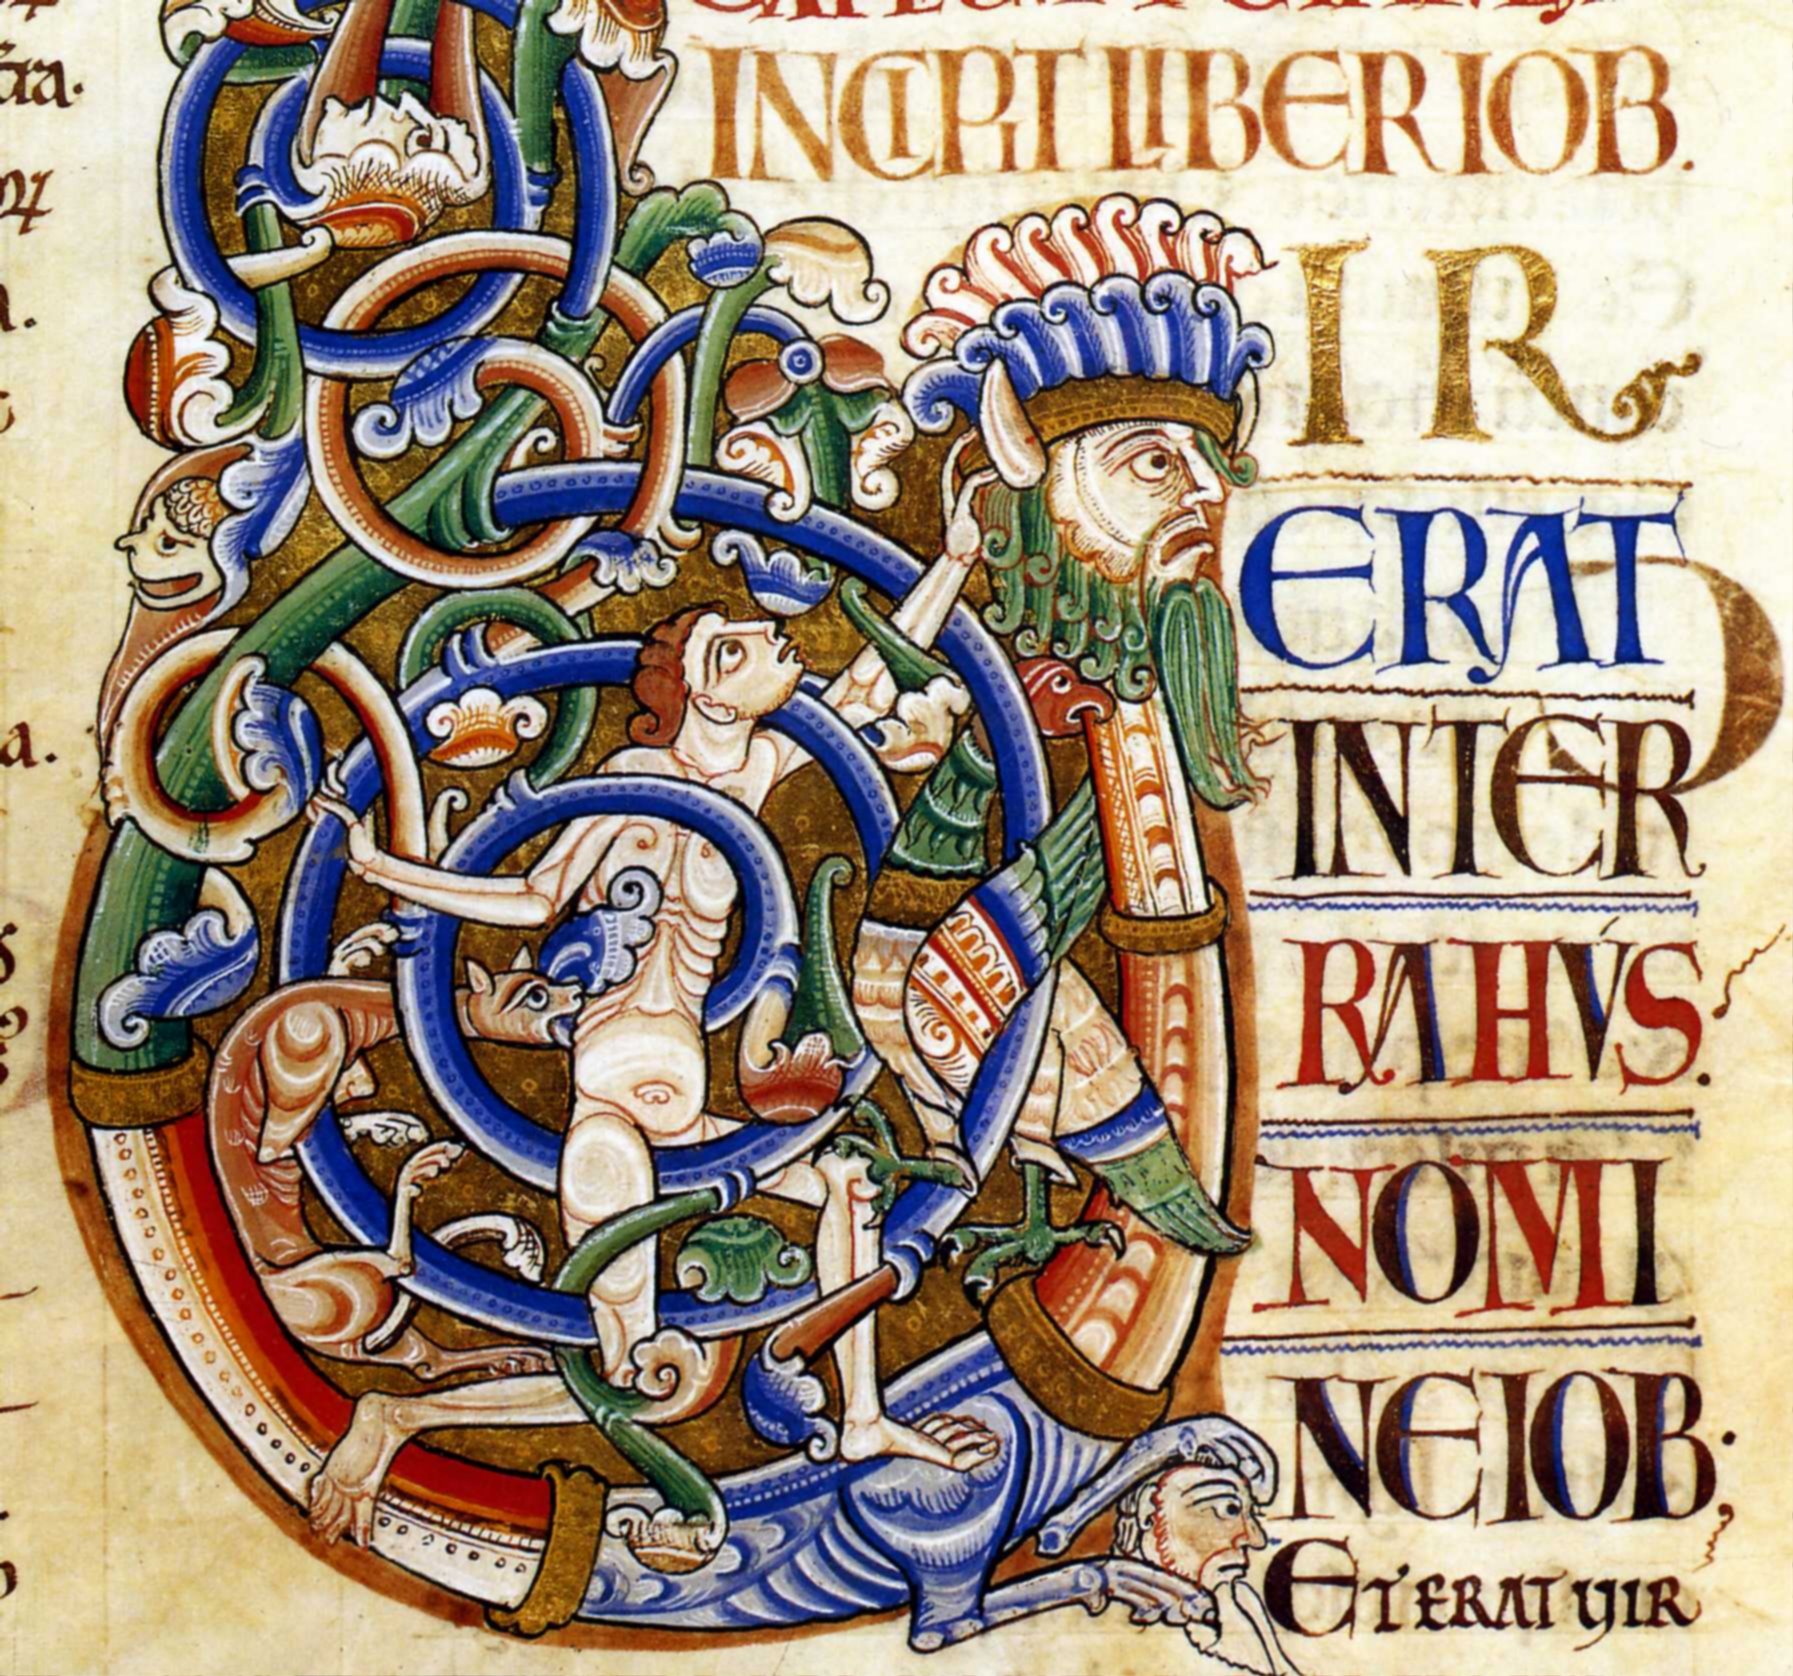 INCIPIT LIBER IOB.
VIR
ERAT
IN TER
RA HVS.
NOMI
NE IOB;
ET ERAT VIR